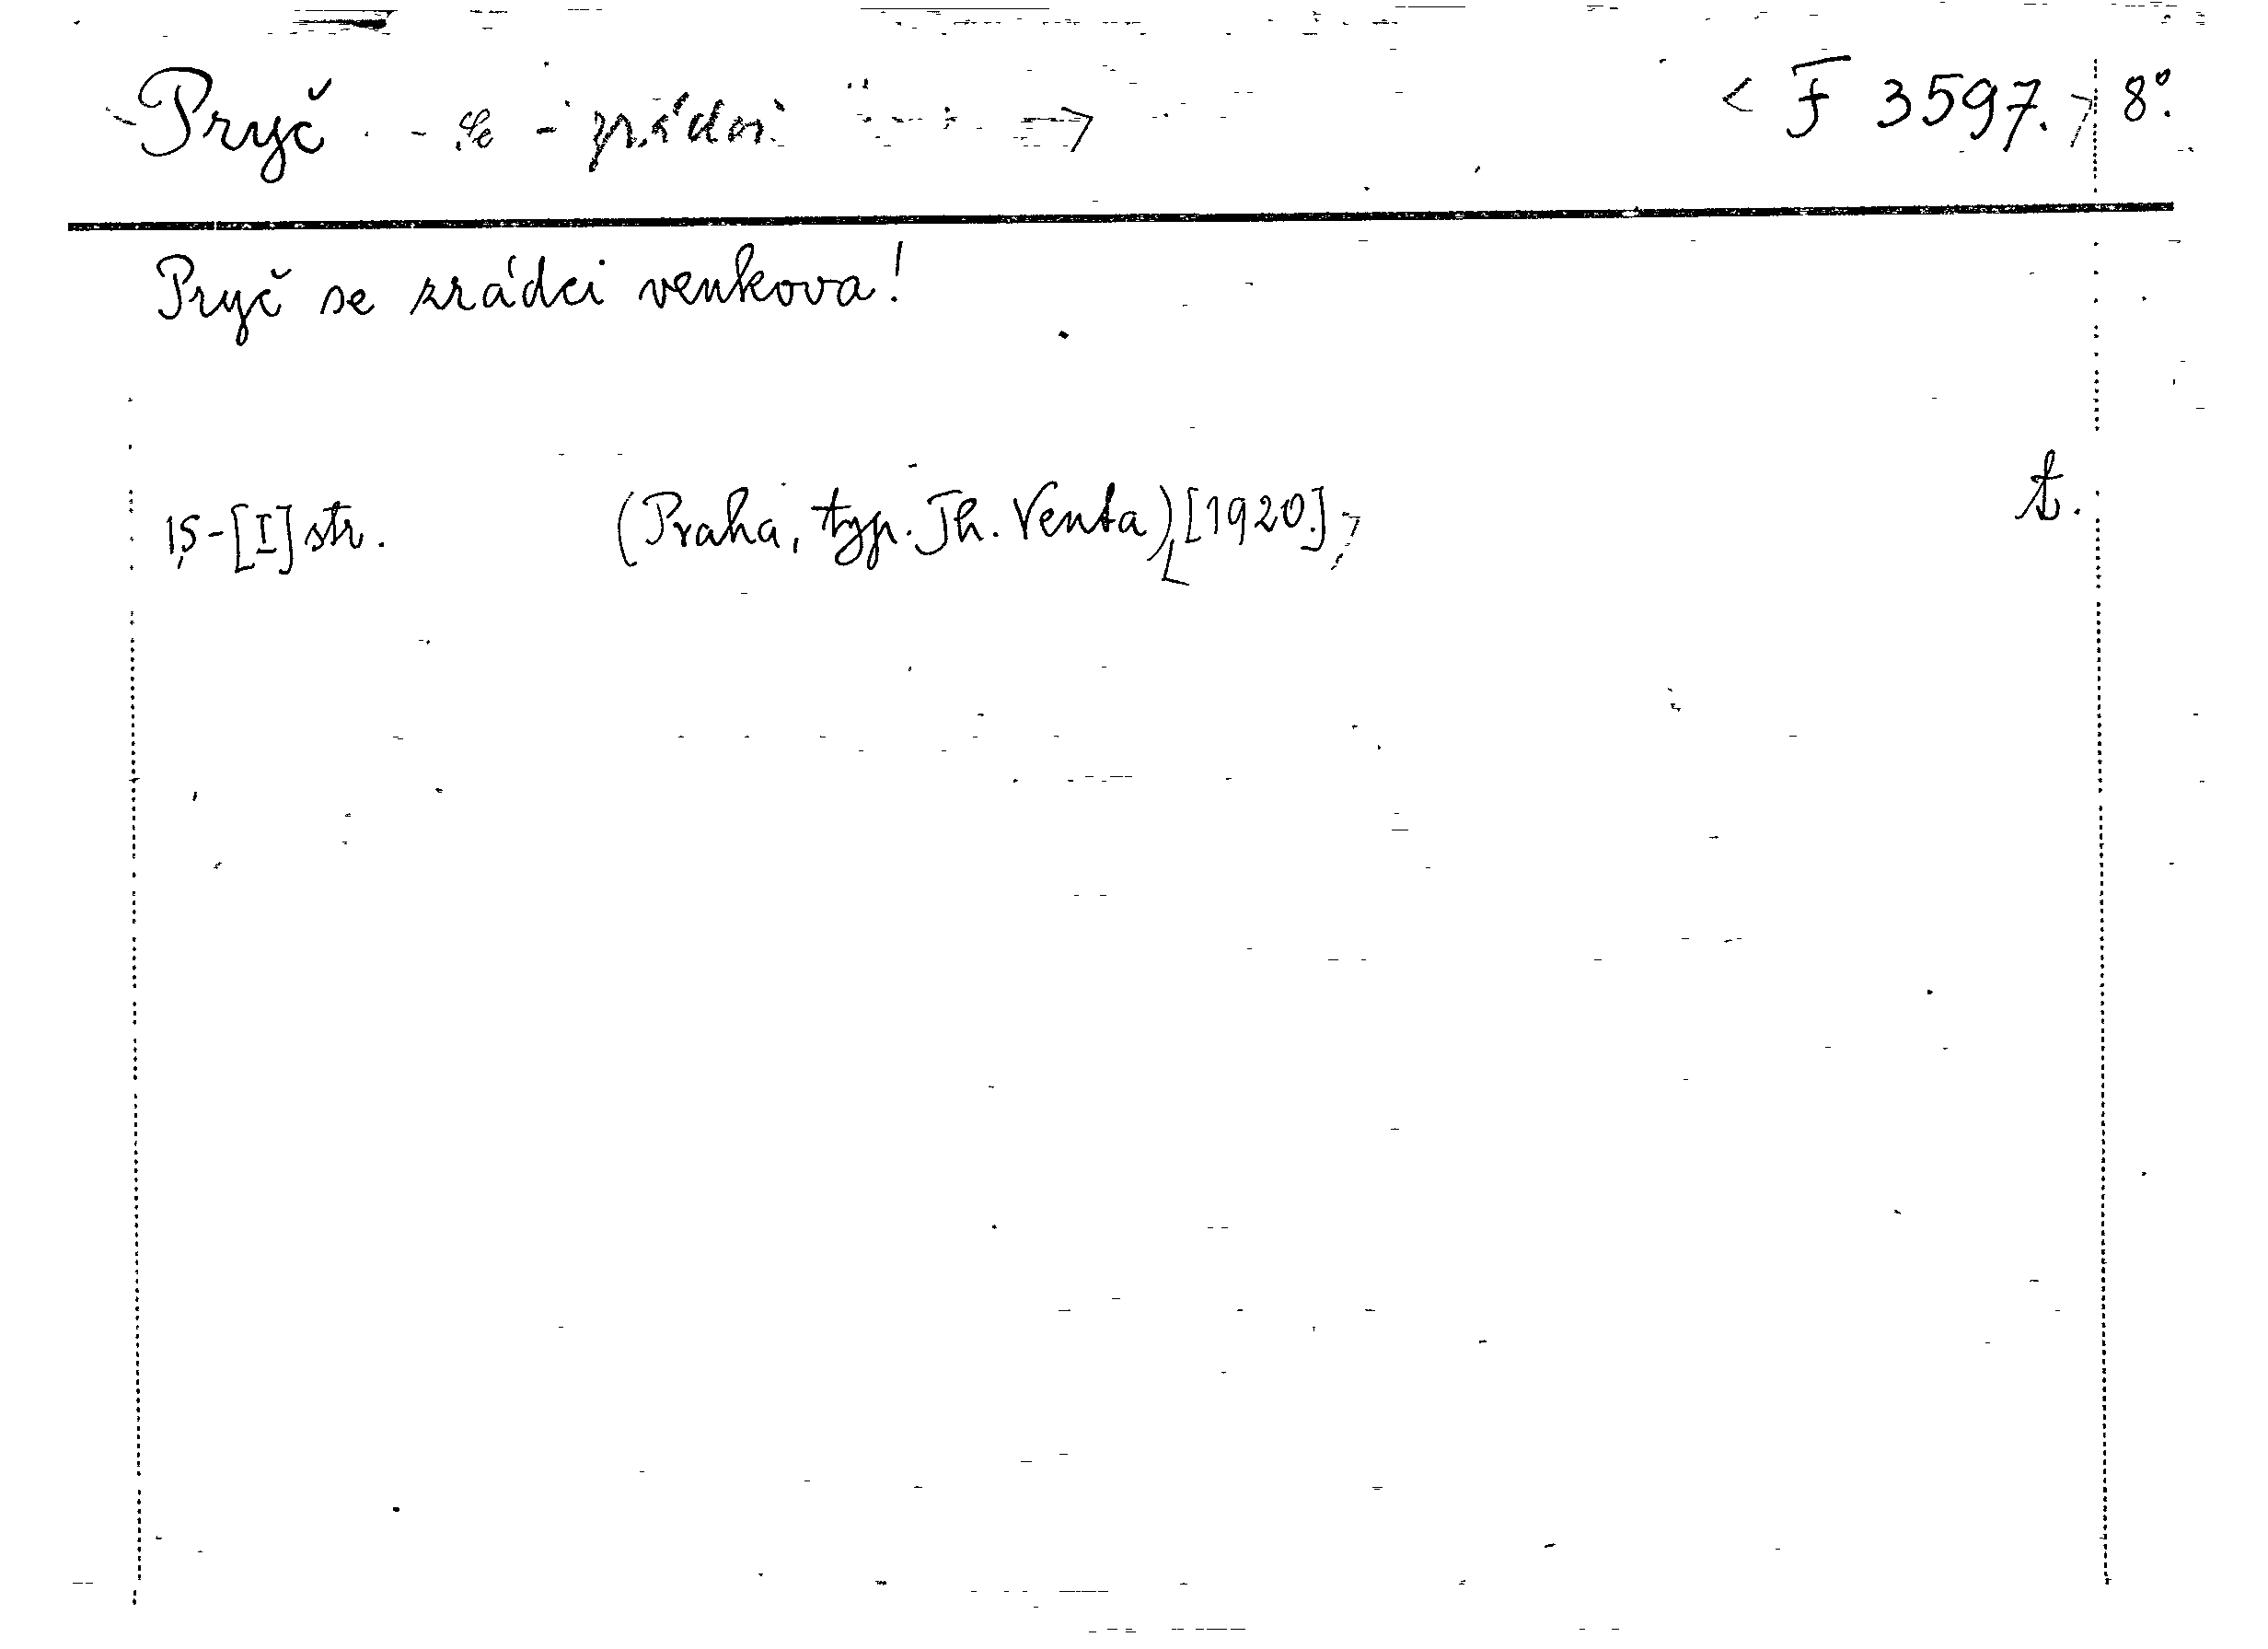 Pryč - se - zrádci < F 3597. > 8°.
Pryč se zrádci venkova!
t.
15-[I] str. (Praha, typ. Th. Venta) [1920.]